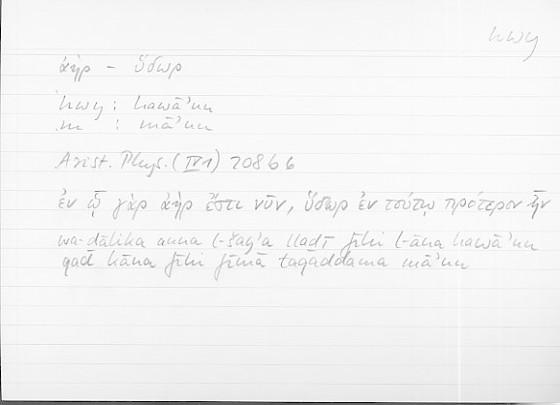 hwy
ἀήρ – ὕδωρ
hwy : hawāʾun
m : māʾun
Arist. Phys. (IV 1) 208 b 6
ἐν ᾧ γὰρ ἀήρ ἔστι νῦν, ὕδωρ ἐν τούτῳ πρότερον ἦν
wa-ḏālika anna l-šayʾa llaḏī fīhi l-āna hawāʾun
qad kāna fīhi fīmā taqaddama māʾun